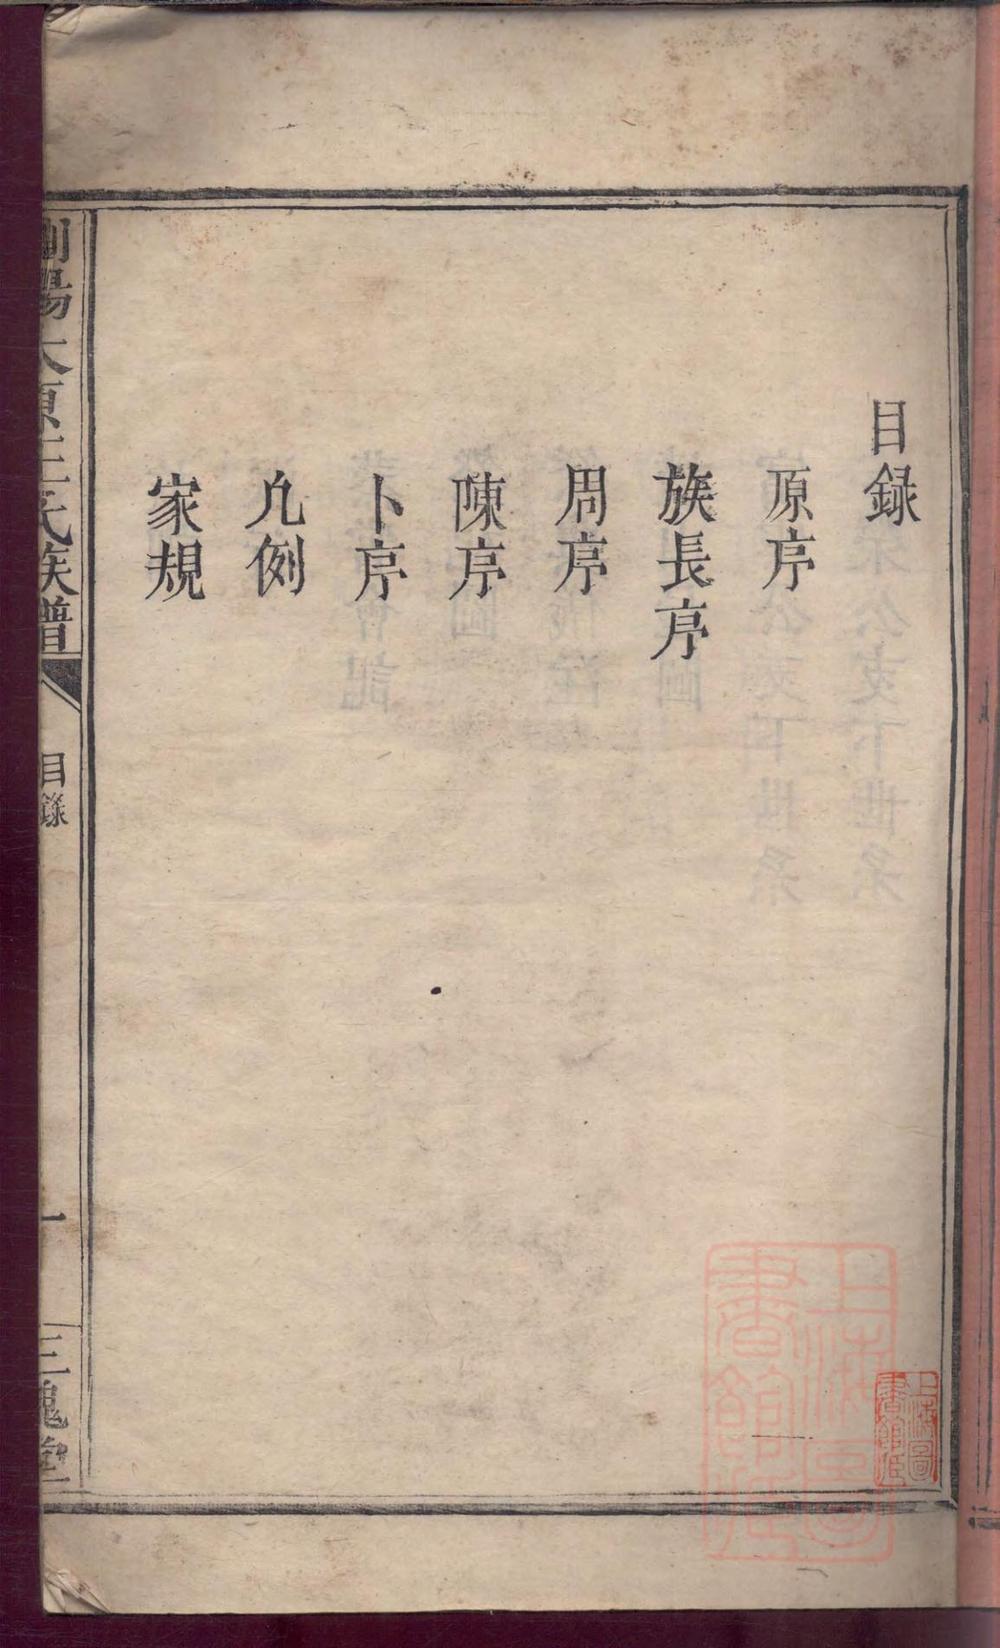 目録
原序
族長序
周序
陳序
卜序
凡例
家規
瀏陽太原王氏族譜
目錄
一
三槐堂
上海圖書館藏
上海圖書館藏